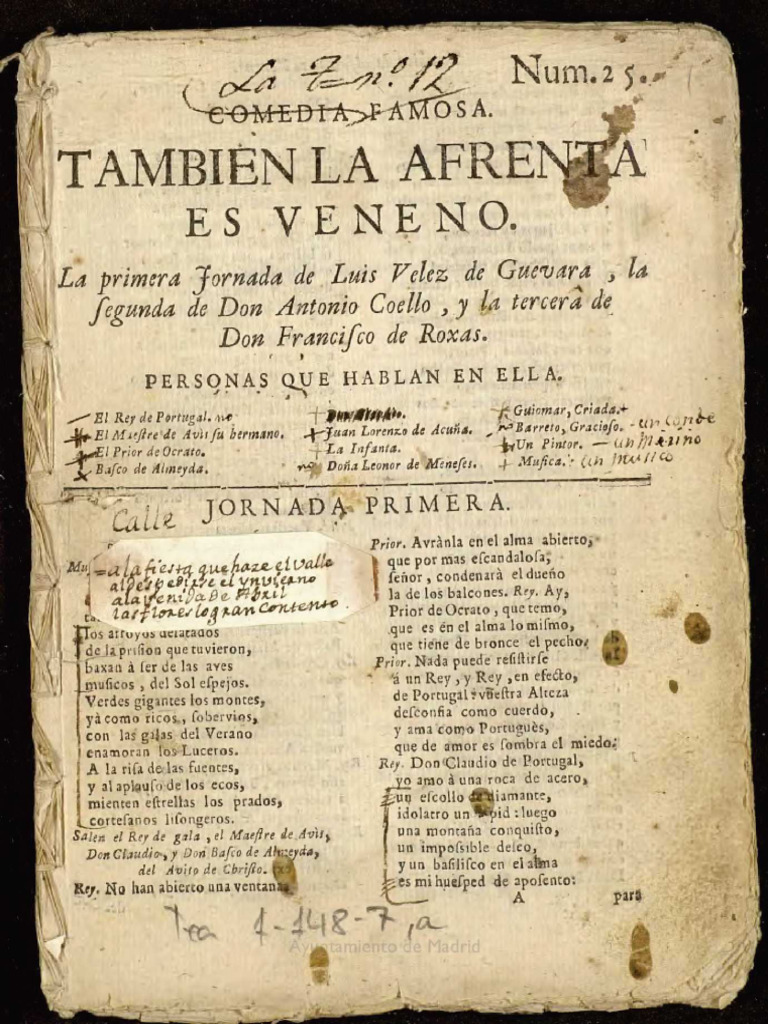 La 7ª nº 12
Num. 25.
COMEDIA FAMOSA.
TAMBIEN LA AFRENTA
ES VENENO.
La primera Jornada de Luis Velez de Guevara, la
ſegunda de Don Antonio Coello, y la tercera de
Don Franciſco de Roxas.
PERSONAS QUE HABLAN EN ELLA.
El Rey de Portugal. no
El Maeſtre de Avis ſu hermano.
El Prior de Ocrato.
Baſco de Almeyda.
Juan Lorenzo de Acuña.
La Infanta.
no Doña Leonor de Meneſes.
Guiomar, Criada.
no Barreto, Gracioſo. - un Conde
Un Pintor. - un Marino
Muſica. - un Musico
JORNADA PRIMERA.
Calle
Mu
a la fiesta que haze el valle
al despedirse el ynvierno
a la venida de Abril
las flores logran contento.
los arroyos deſatados
de la priſion que tuvieron,
baxan à ſer de las aves
muſicos, del Sol eſpejos.
Verdes gigantes los montes,
yà como ricos, ſobervios,
con las galas del Verano
enamoran los Luceros.
A la riſa de las fuentes,
y al aplauſo de los ecos,
mienten eſtrellas los prados,
corteſanos liſongeros.
Salen el Rey de gala, el Maeſtre de Avis,
Don Claudio, y Don Baſco de Almeyda,
del Avito de Chriſto.
Rey. No han abierto una ventana
Prior. Avrànla en el alma abierto,
que por mas eſcandaloſa,
ſeñor, condenarà el dueño
la de los balcones. Rey. Ay,
Prior de Ocrato, que temo,
que es èn el alma lo miſmo,
que tiene de bronce el pecho.
Prior. Nada puede reſiſtirſe
à un Rey, y Rey, en efecto,
de Portugal: vueſtra Alteza
deſconfia como cuerdo,
y ama como Portuguès,
que de amor es ſombra el miedo.
Rey. Don Claudio de Portugal,
yo amo à una roca de acero,
un eſcollo de diamante,
idolatro un aſpid: luego
una montaña conquiſto,
un impoſsible deſeo,
y un baſiliſco en el alma
es mi hueſped de apoſento:
A
para
Tea 1-148-7, a
Ayuntamiento de Madrid